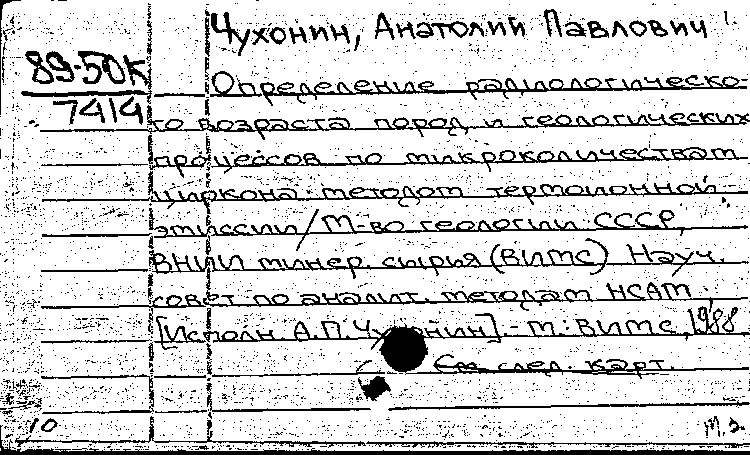 Чухонин, Анатолий Павлович
89-50К
7414
Определение радиологическо-
го возраста пород и геологических
процессов по микроколичествам
циркона методом термоионной
эмиссии / М-во геологии СССР,
ВНИИ минер. сырья (ВИМС) Науч.
совет по аналит. методам НСАМ;
[Исполн. А.П. Чухонин]. - М.: ВИМС, 1988
См. след. карт.
10
М.2.